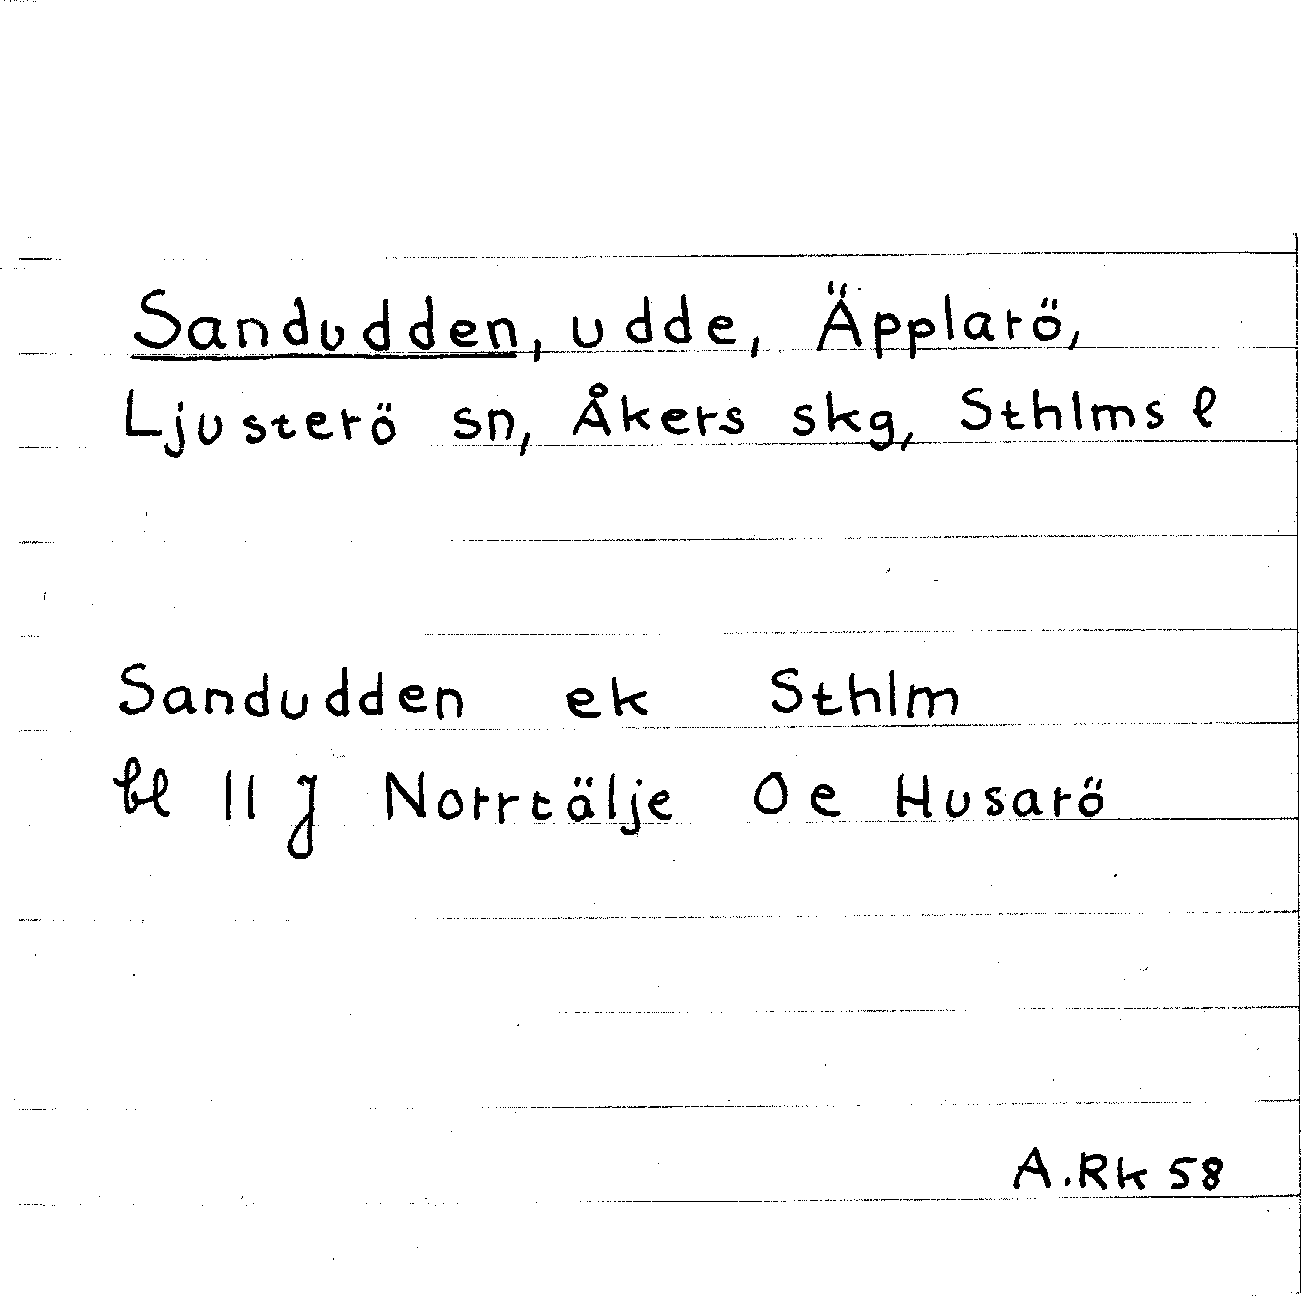 Sandudden, udde, Äpplarö,
Ljusterö sn, Åkers skg, Sthlms l
Sandudden ek Sthlm
bl 11 J Norrtälje O e Husarö
A.Rk 58